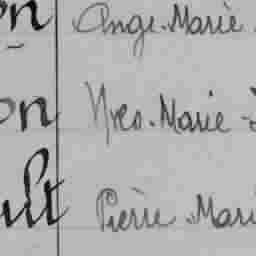 on Ange. Marie
on Yves. Marie
ult Pierre Mari